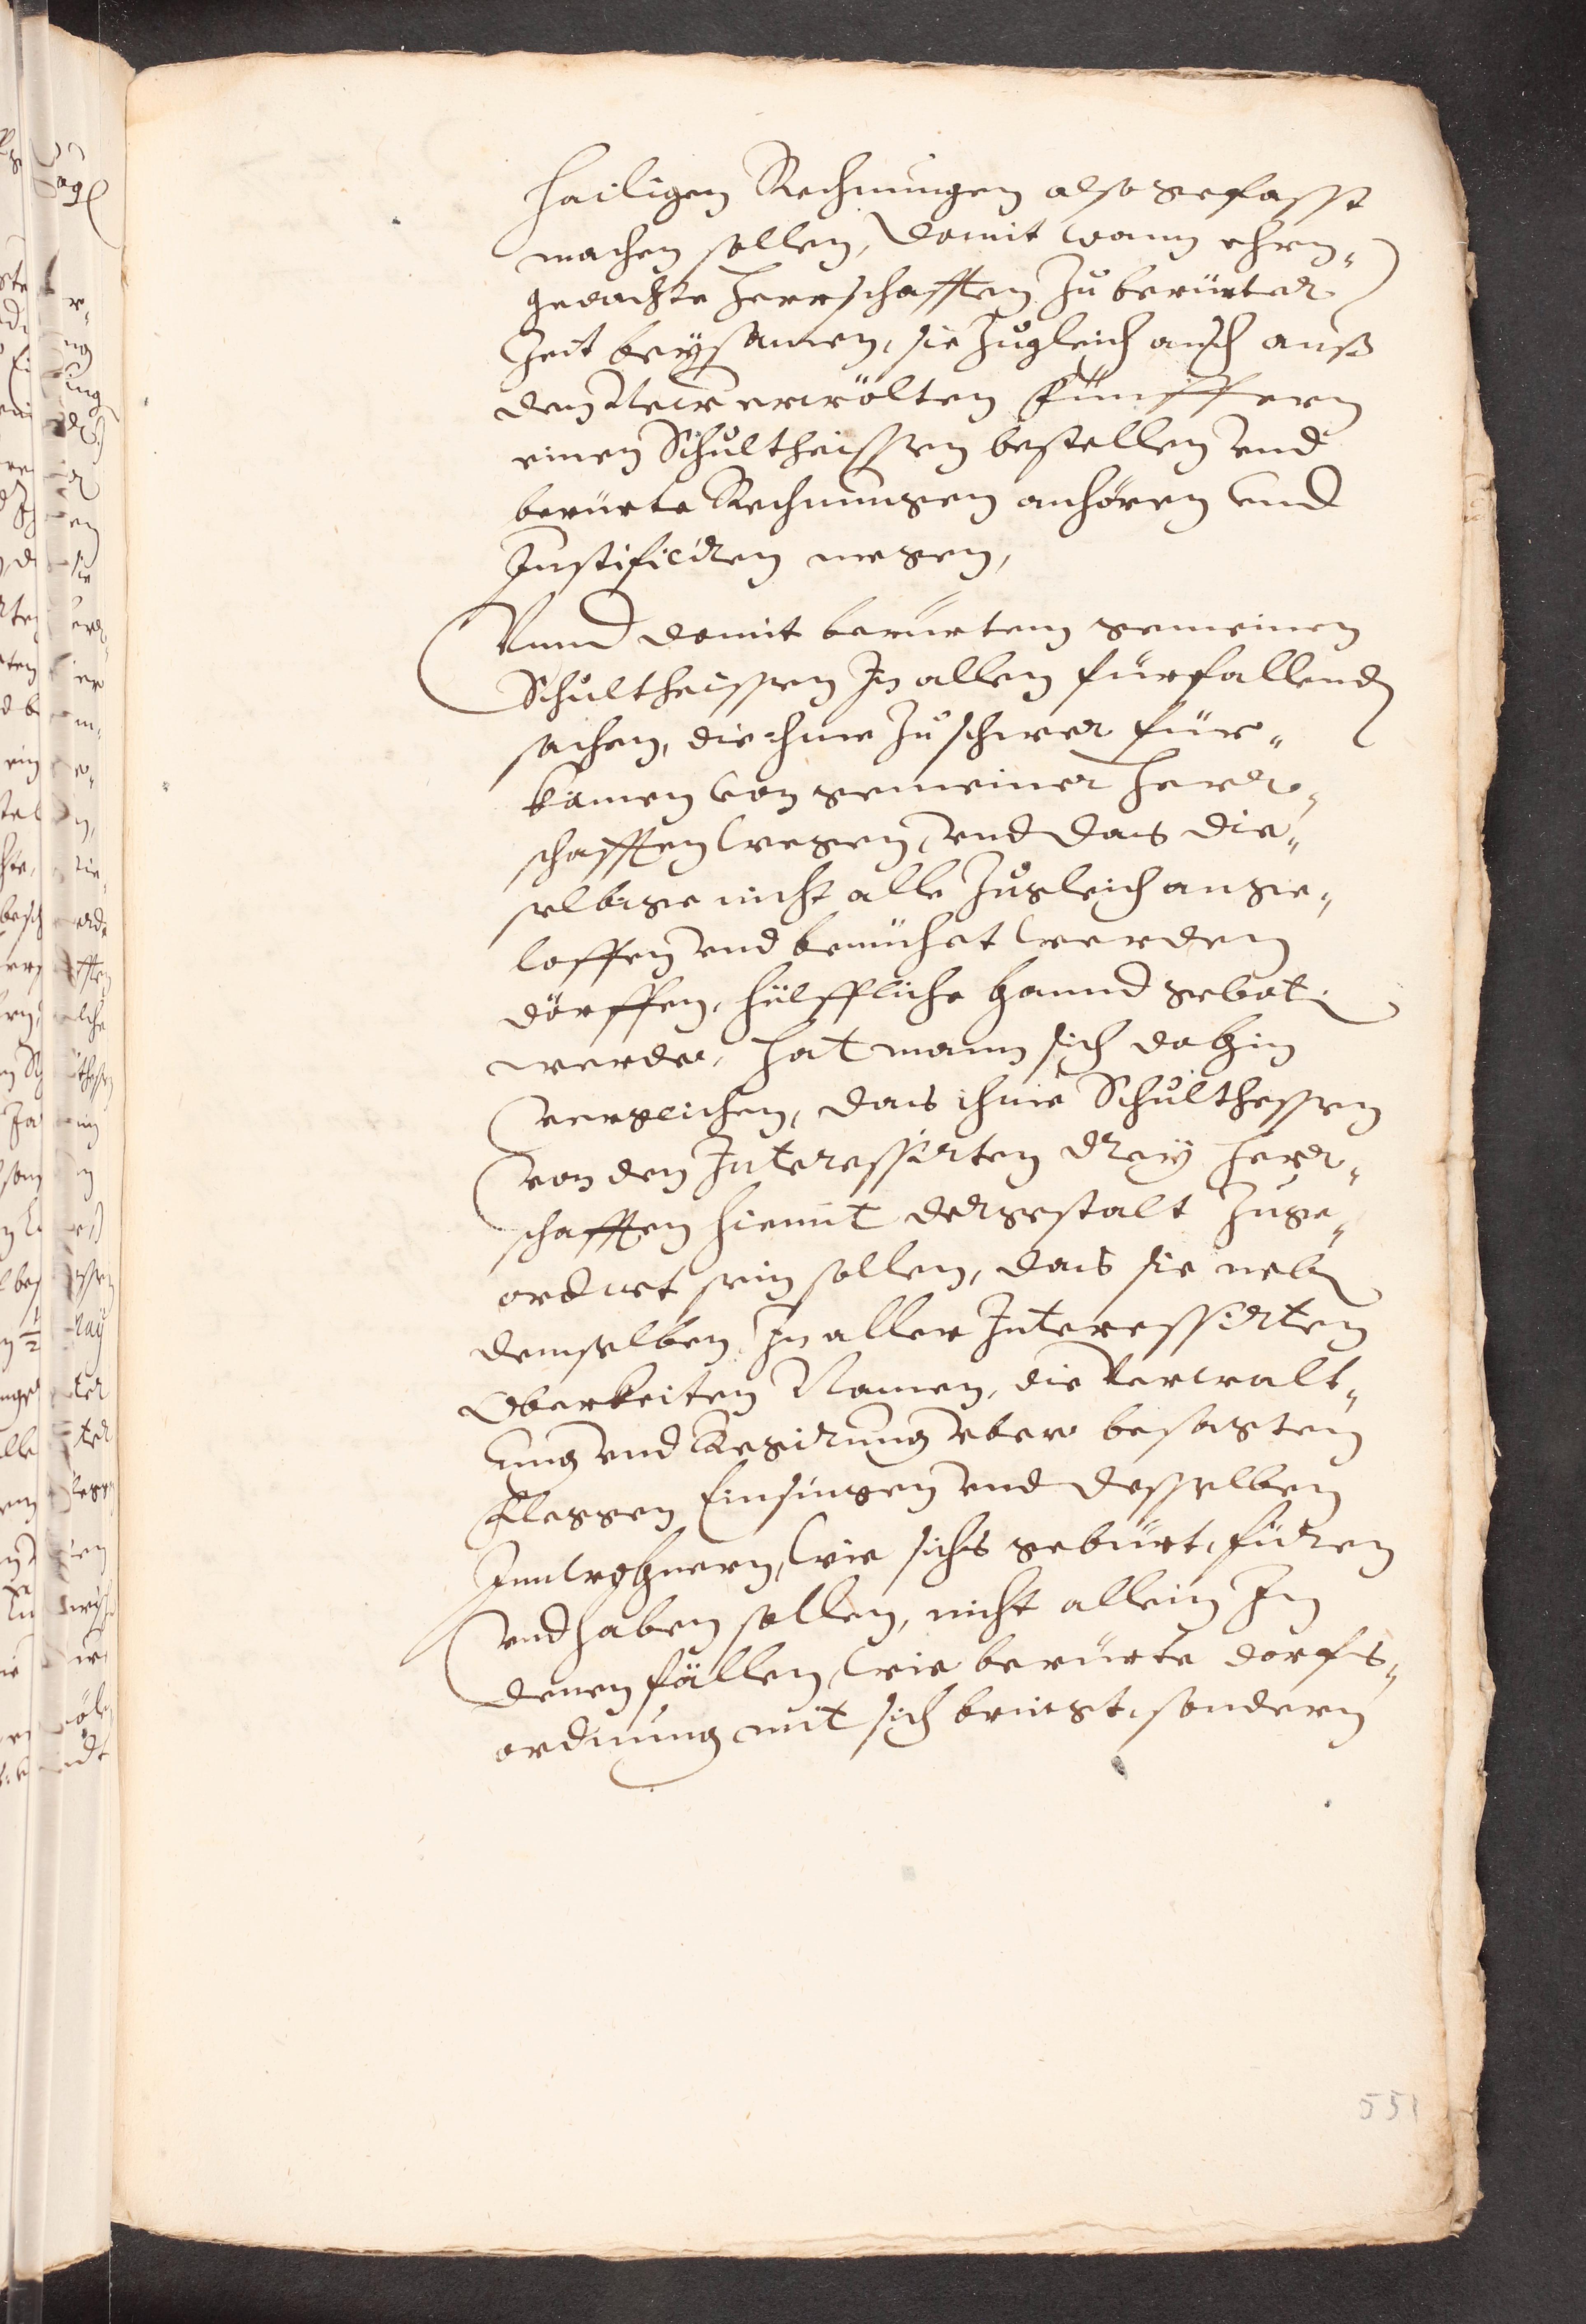 Hailigen Rechnungen also gefasst
machen sollen, damit wann ehrn„
gedachte Herrschafften zu berürter
Zeit beysamen, sie zugleich auch auß
den New erwölten Fünffern
einen Schultheissen bestellen vnd
berürte Rechnungen anhören vnd
Justificiren megen,
Vnnd damit berürtem gemeinen
Schultheissen In allen fürfallend
sachen, die ihme zu schwer für„
kämen von gemeiner Herr„
schafften wegen, vnd das die„
selbige nicht alle zugleich ange„
loffen vnd bemühet werden
dörffen, hülffliche hannd gebot
werde, hat mann sich dahin
verglichen, das ihme Schulthessen
von den Interessirten drey Herr„
schafften hiemit dergestalt zuge„
ordnet sein sollen, das sie neb
demselben In aller Interessirten
Oberkeiten Namen, die Verwalt„
ung vnd Regirung eber besagten
Flesssen Einsingen vnd desselben
Innwohnern, wie sichs gebürt, füren
vnd haben sollen, nicht allein In
denen fällen, wie berürte dorfs„
ordnung mit sich bringt, sondern
551